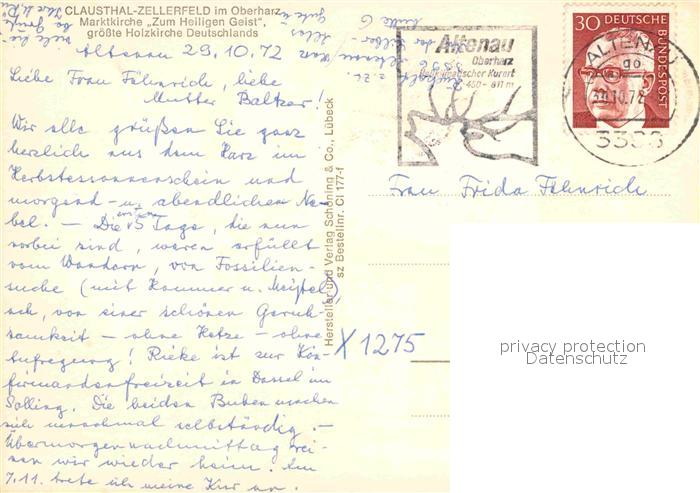 CLAUSTHAL-ZELLERFELD im Oberharz
Marktkirche „Zum Heiligen Geist",
größte Holzkirche Deutschlands
Altenau 29.10.72
Liebe Frau Fähnrich, liebe
Mutter Baltzer!
Wir alle grüßen Sie ganz
herzlich aus dem Harz im
Herbstessonnenschein und
morgend- u. abendlichen Ne-
bel. – Die ersten 5 Tage, die nun
vorbei sind, waren erfüllt
vom Wandern, von Fossilien-
suche (mit Hammer u. Meißel),
ach, von einer schönen Geruh-
samkeit – ohne Hetze – ohne
Aufregung! Rieke ist zur Kon-
firmandenfreizeit in Dassel im
Solling. Die beiden Buben machen
sich manchmal selbständig. –
Übermorgennachmittag rei-
sen wir wieder heim. Am
7.11. trete ich meine Kur an.
Hersteller und Verlag Schöning & Co., Lübeck
sz Bestellnr. Cl 177-f
Altenau
Oberharz
Heilklimatischer Kurort
450 - 811 m
30 DEUTSCHE
BUNDESPOST
ALTENAU
30.10.72
3396
Frau Frida Fähnrich
X 1275
privacy protection
Datenschutz